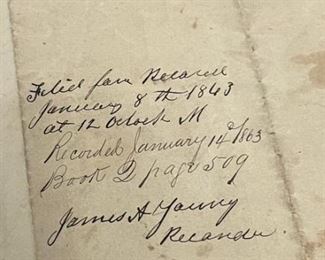 Filed for Record
January 8th 1863
at 12 Oclock M
Recorded January 14th 1863
Book 2 page 509
James A Young
Recorder.